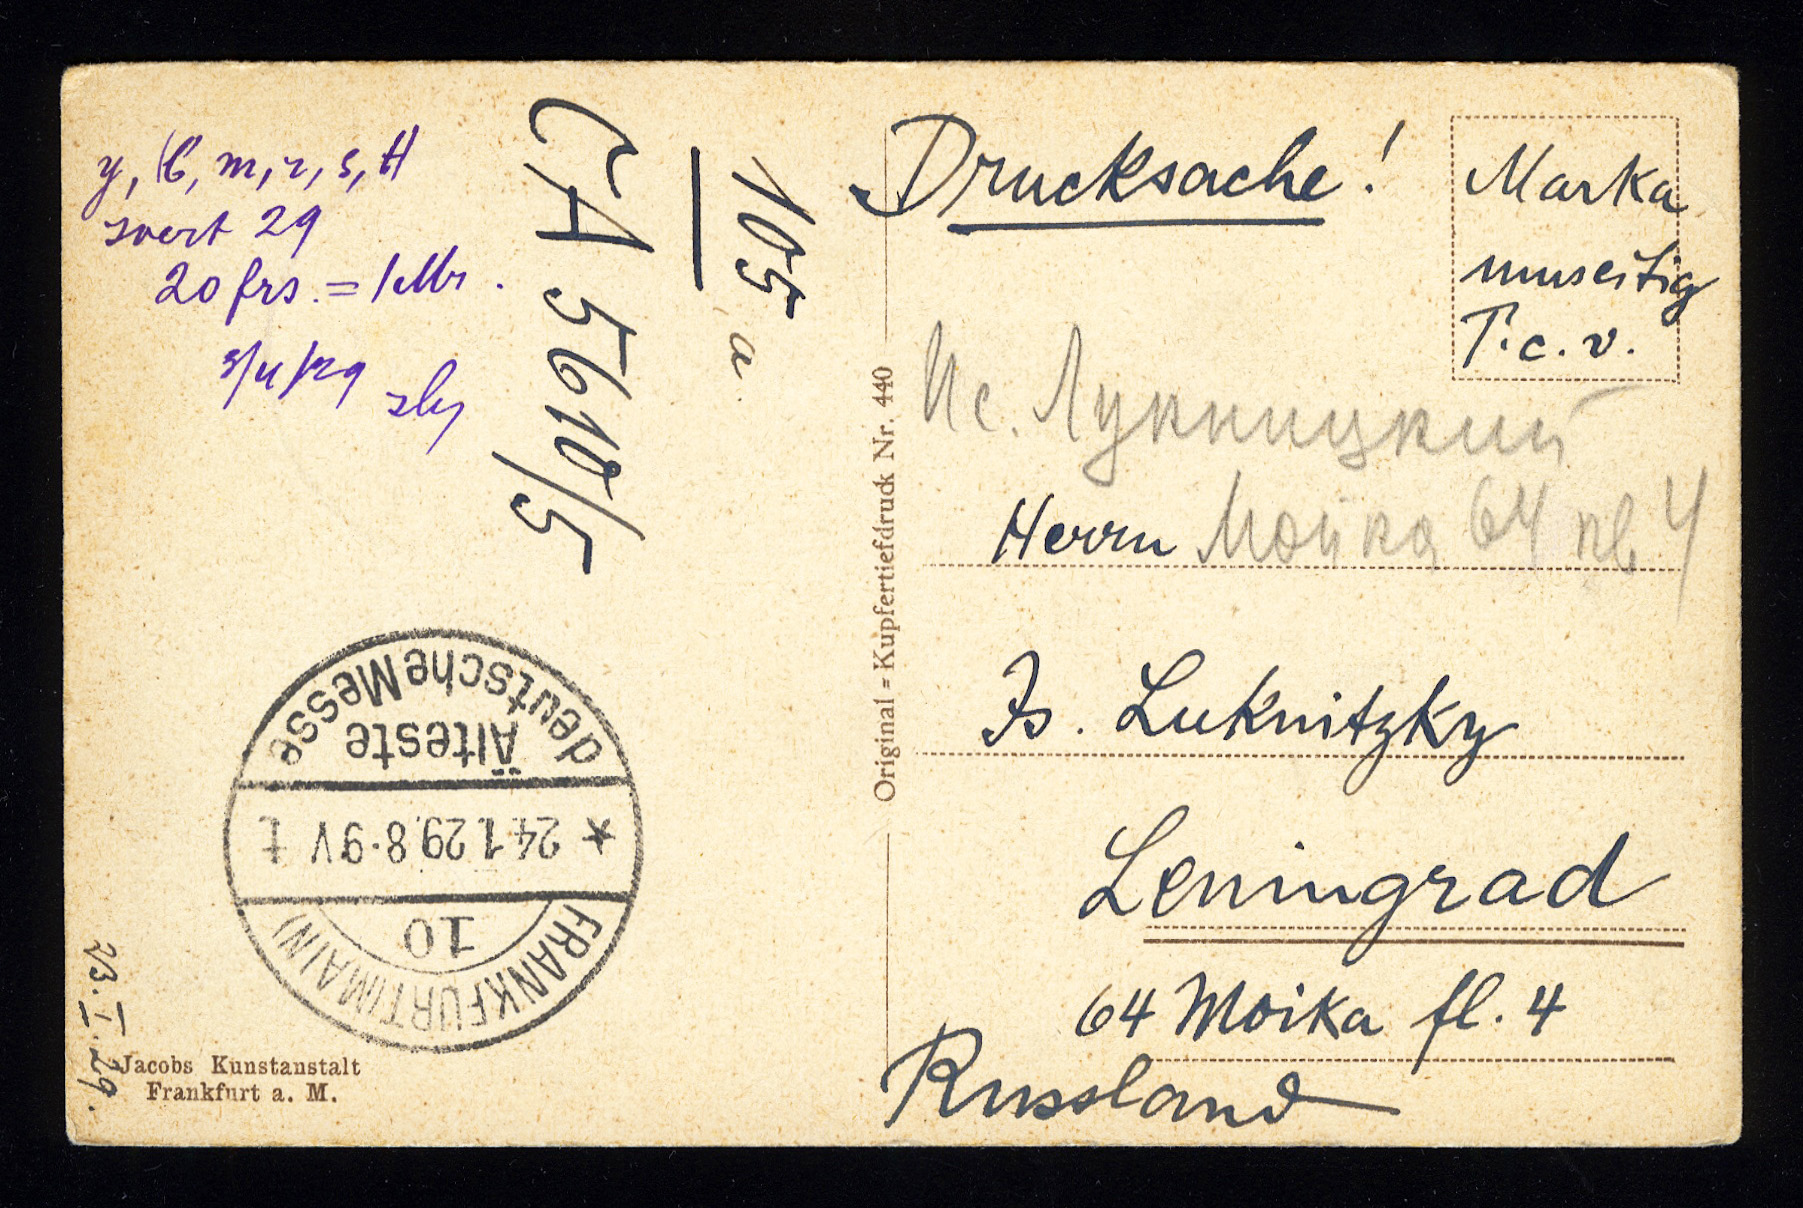 y, B, m, r, s, H
wert 29
20 frs. = 1 Mr.
CA 5610/5
105
a.
Drucksache!
Marka
umseitig
T.c.v.
Ис. Лукницкий
Herrn Мойка 64 кв 4
Is. Luknitzky
Leningrad
64 Moika fl. 4
Russland
Original = Kupfertiefdruck Nr. 440
deutsche Messe
Älteste
* 24.1.29.8-9V t
10
FRANKFURT (MAIN)
23.I.29.
Jacobs Kunstanstalt
Frankfurt a. M.